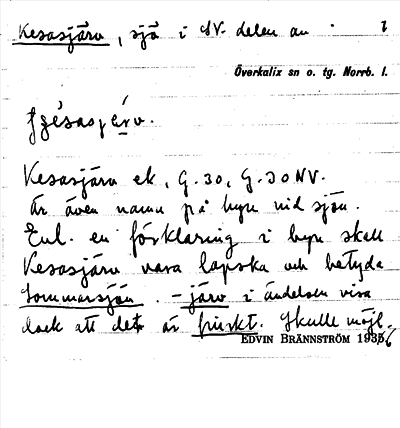 Kesasjärv, sjö i NV. delen av 1
Överkalix sn o. tg. Norrb. l.
Kesasjärv ek, G.30, G.30 NV.
är även namn på byn vid sjön.
Enl. en förklaring i byn skall
Kesasjärv vara lapska och betyda
sommarsjön. -järv i ändelsen visa
dock att det är finskt. Skulle möjl.
EDVIN BRÄNNSTRÖM 1936